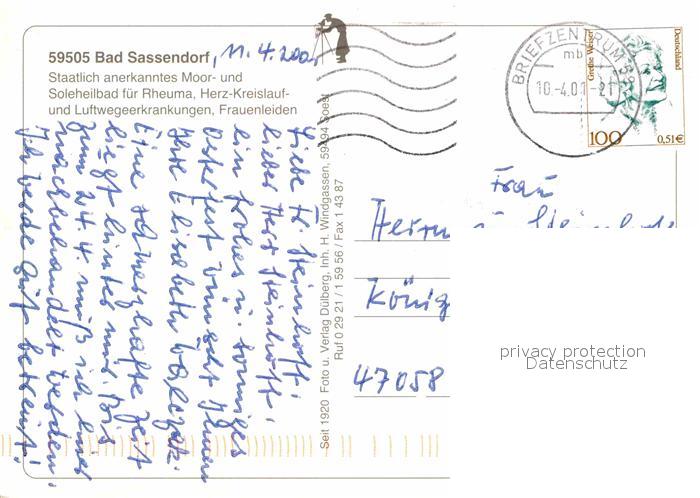 59505 Bad Sassendorf, 11.4.200
Staatlich anerkanntes Moor- und
Soleheilbad für Rheuma, Herz-Kreislauf-
und Luftwegeerkrankungen, Frauenleiden
Liebe Fr. Steinhoff,
lieber Herr Steinhoff,
ein frohes u. sonniges
Osterfest wünscht Ihnen
Ihre Elisabeth
Eine schmerzhafte Zeit
liegt hinter mir. Bis
zum 24.4. muß ich hier
nachbehandelt werden.
Ich werde gut betreut!
Seit 1920 Foto u. Verlag Dülberg, Inh. H. Windgassen, 59494 Soest
Ruf 0 29 21 / 1 59 56 / Fax 1 43 87
BRIEFZENTRUM 59
mb
10.-4.01-21
Grethe Weiser
Deutschland
100 0,51€
Frau
Herrn
König
47058
privacy protection
Datenschutz